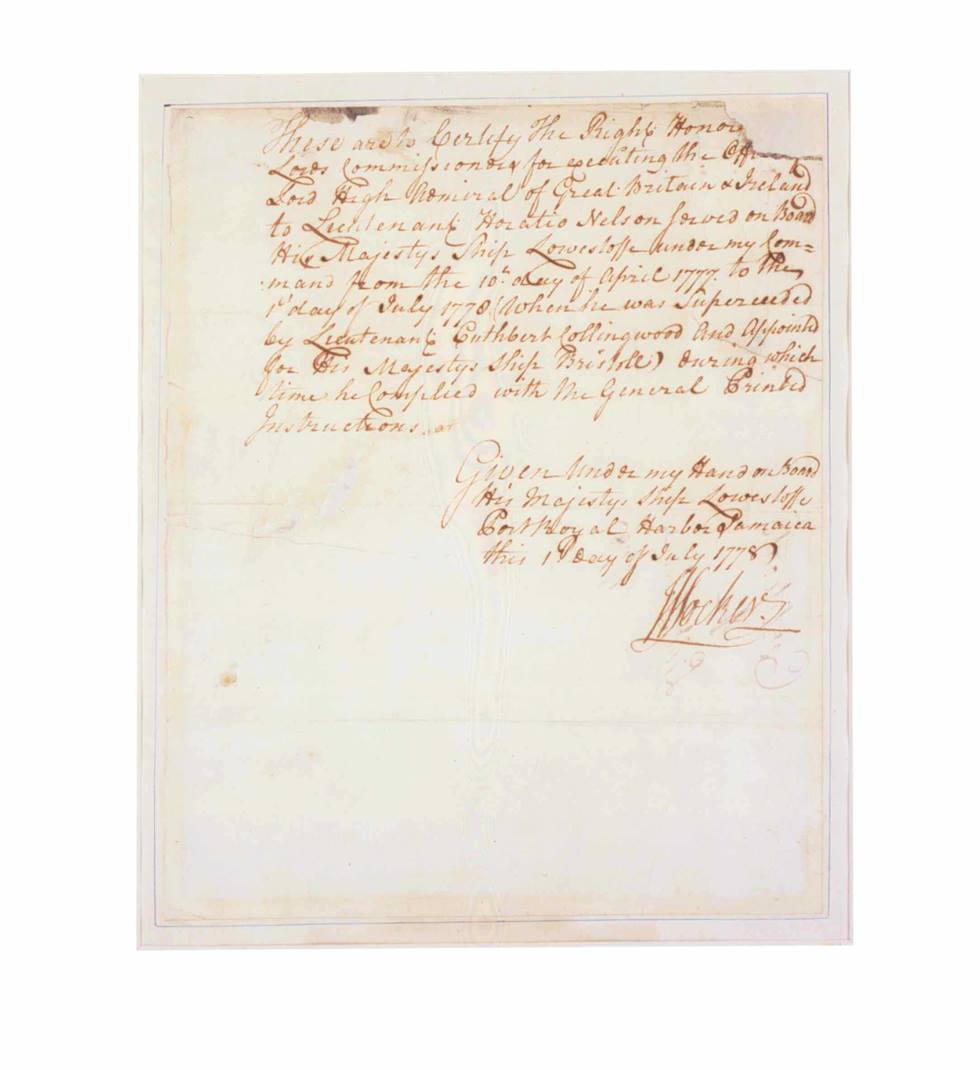 These are to Certify the Right Honor
Lords Commissioners for executing the Off
Lord High Admiral of Great Britain & Ireland
to Lieutenant Horatio Nelson served on Board
His Majestys Ship Lowestoffe under my Com=
mand from the 10th day of April 1777 to the
1st day of July 1778 (When he was Superceeded
by Lieutenant Cuthbert Collingwood And Appointed
for His Majestys Ship Bristoll) during which
time he Complied with the General Printed
Instructions
Given Under my Hand on Board
His Majestys Ship Lowestoffe
Port Royal Harbor Jamaica
this 1st Day of July 1778
Wm Locker